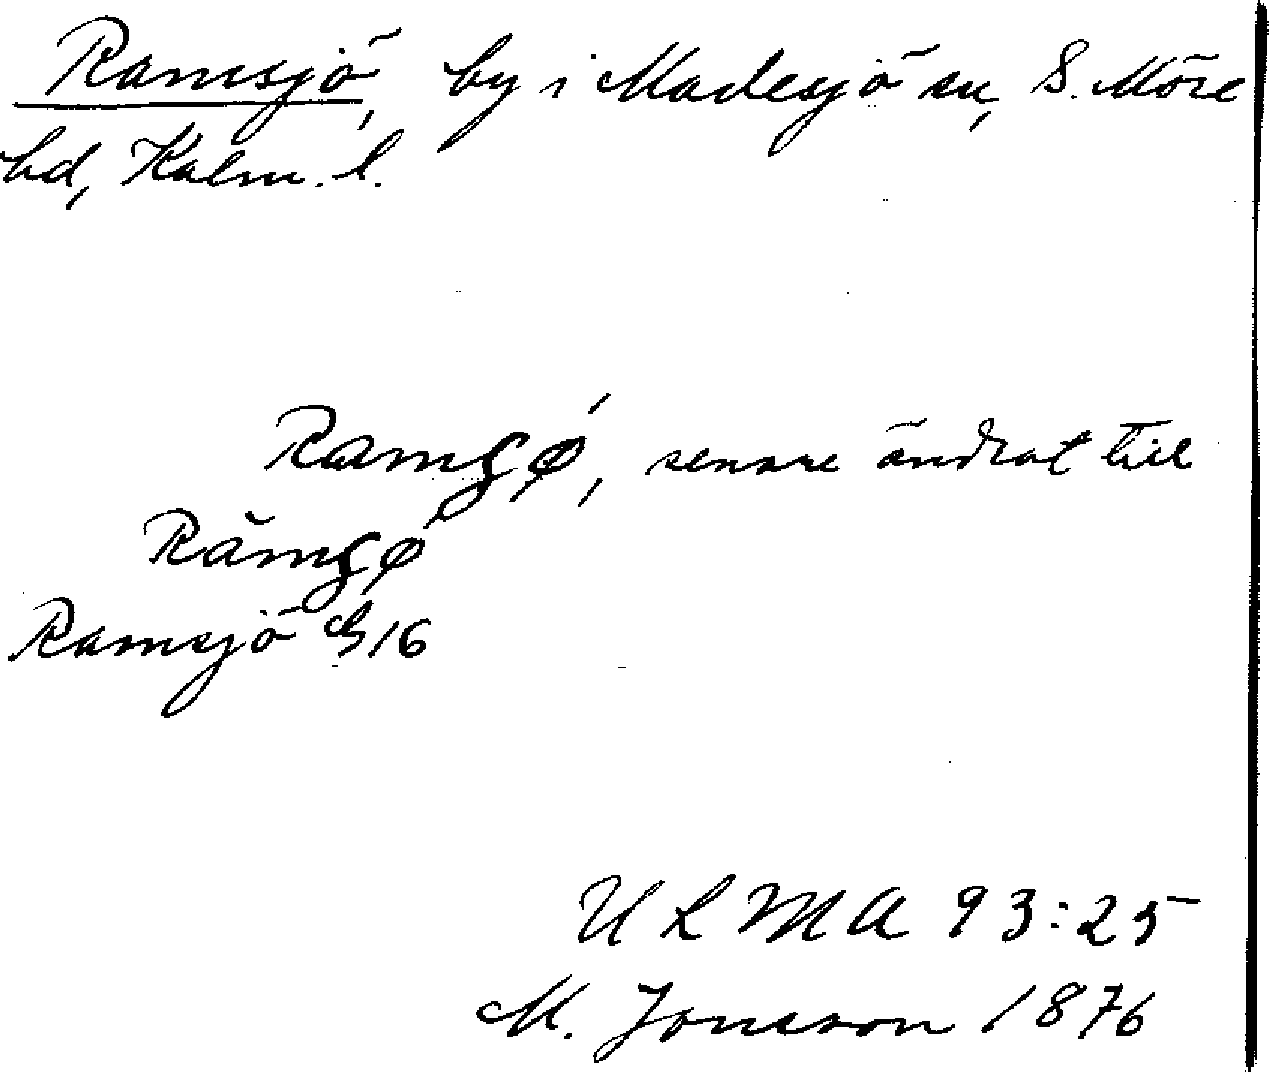 Ramsjö, by i Madesjö sn, S. Möre
hd, Kalm. l.
Ramʂø, senare ändrat till
Rămʂø
Ramsjö G16
ULMA 93:25
M. Jonsson 1876